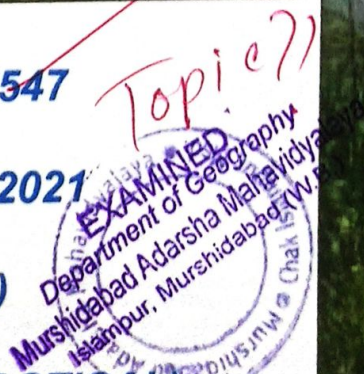 547
Topic??
2021
EXAMINED
Department of Geography
Murshidabad Adarsha Mahavidyalaya
Islampur, Murshidabad (W.B.)
)